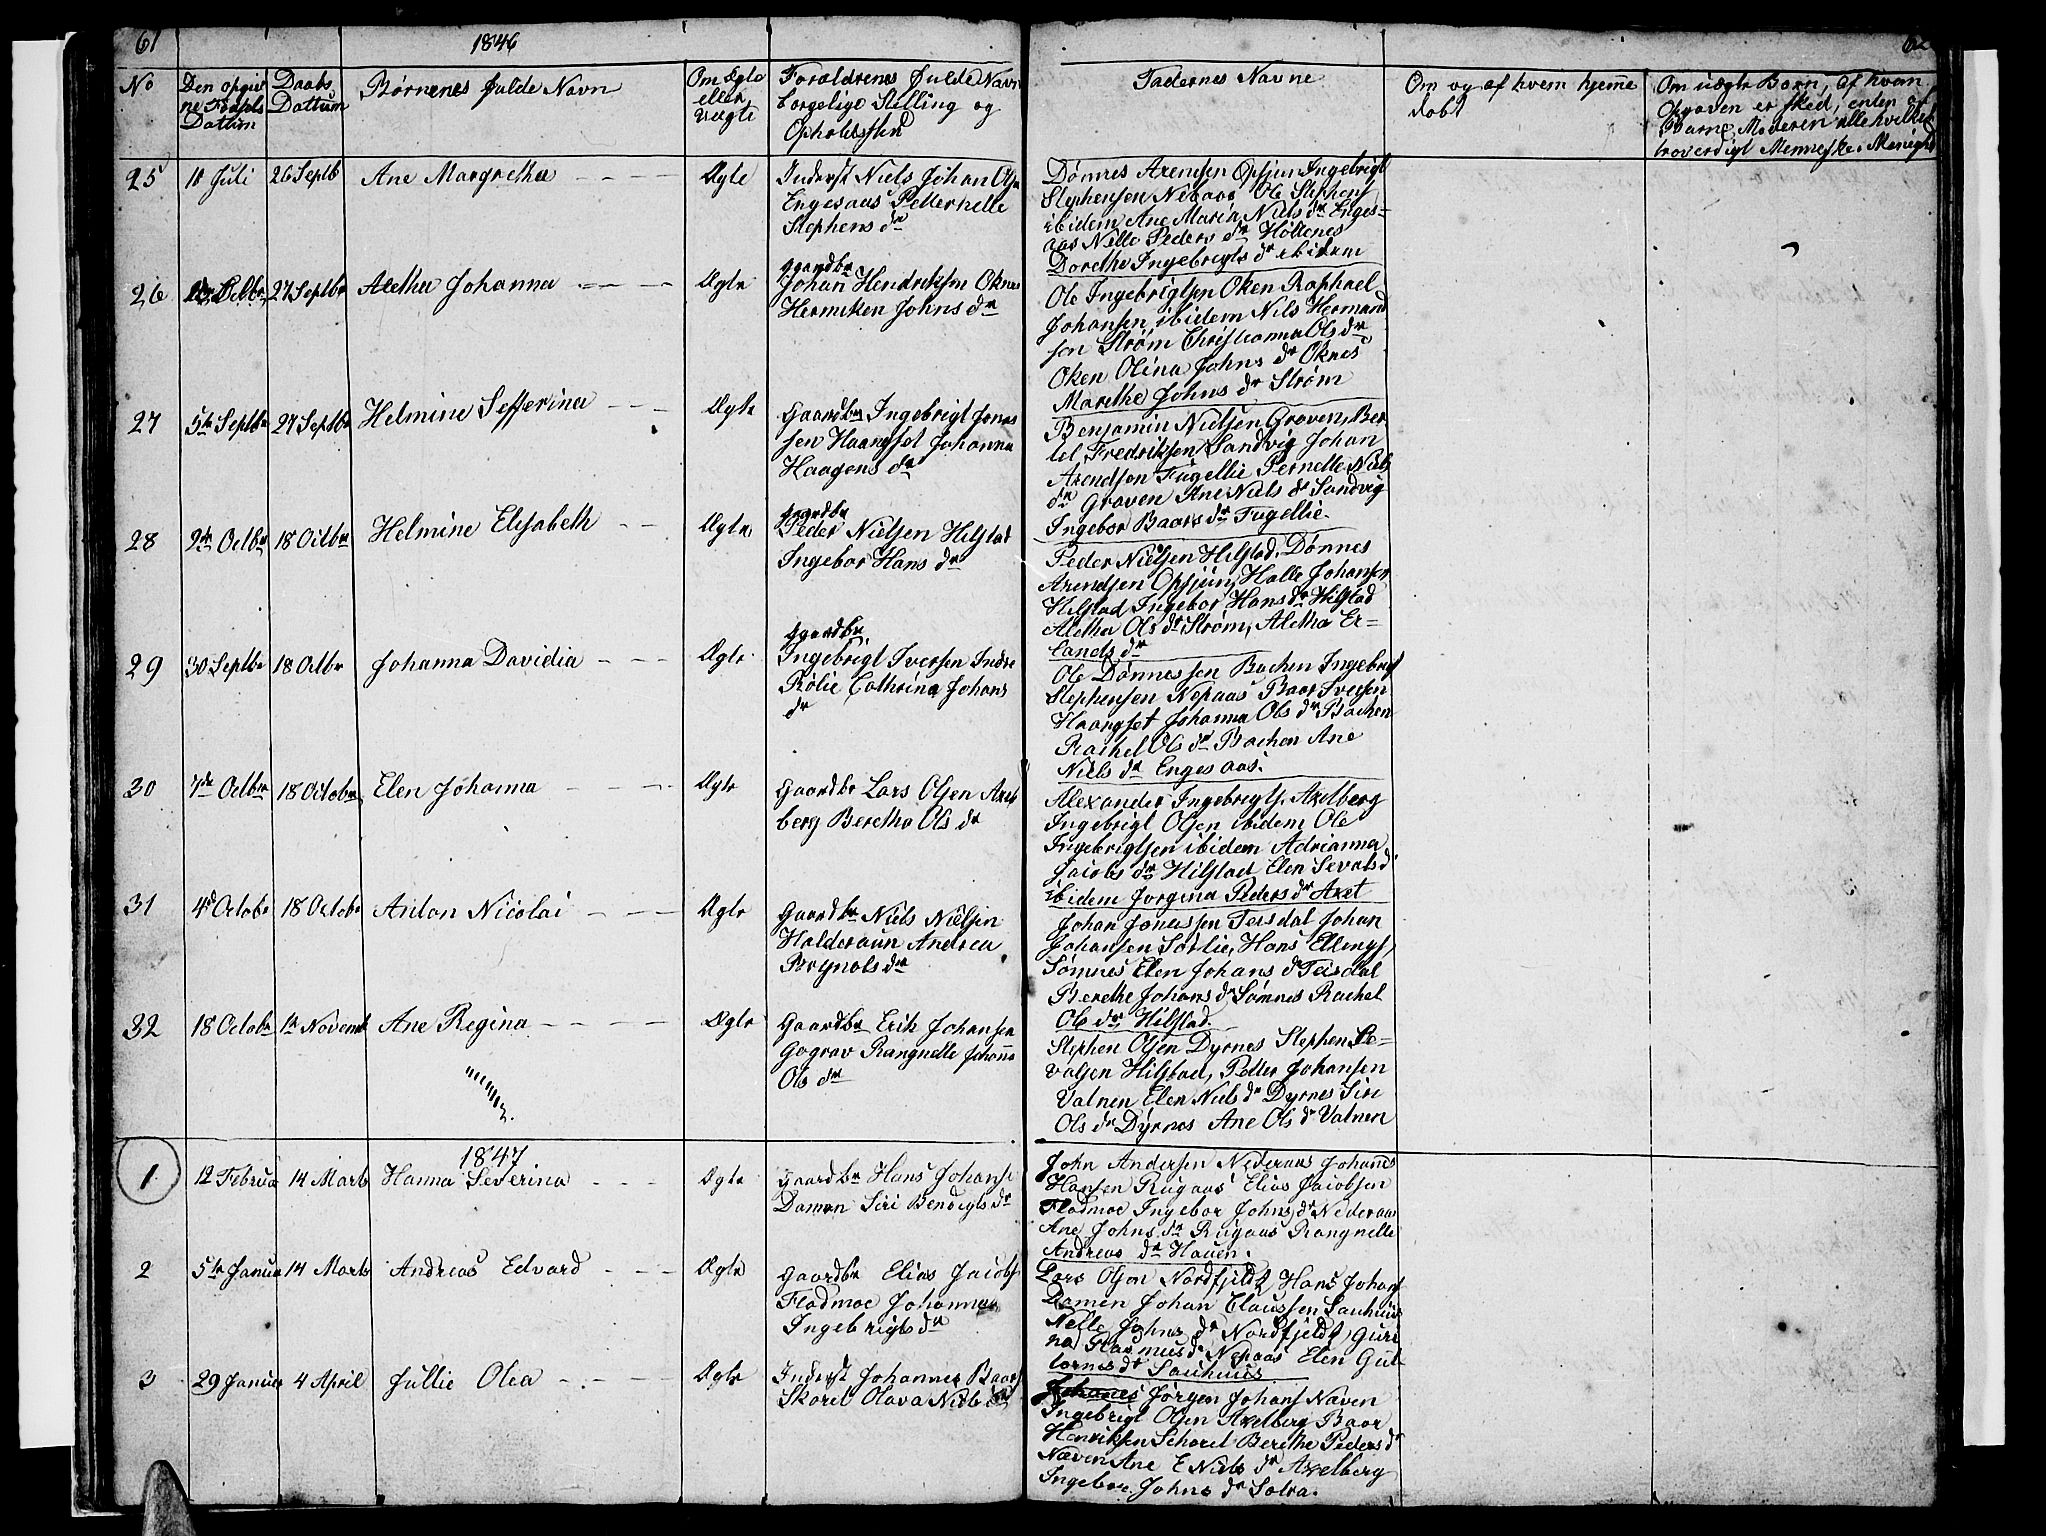 61
1846
No
Den opgivne Fødsels Dattum
Daabs Dattum
Børnenes fulde Navn
Om Ægte eller Uægte
Forældrenes fulde Navn borgelige Stilling og Opholdssted
Fadernes Navne
Om og af hvem hjemme døbt
Om uægte Børn, af hvem Opgaven er sked, enten af Barne Moderen elle hvilket troverdigt Menneske i Menighed
25
11 Juli
26 Septb
Ane Margretha
Ægte
Inderst Niels Johan Ols
Engesaas Petternelle
Stephens dr
Dønnes Arensen Opsjøn Ingebrigt
Stephensen Nepaas Ole Stephens
ibidem Ane Maria Niels dr Enges=
aas Nille Peders dr Hollenes
Dorethe Ingebrigts dr ibidem
26
27 Septbr
Aletha Johanna
Ægte
Gaardbr
Johan Hendriksen Oknes
Henriken Johns dr
Ole Ingebrigtsen Oken Raphael
Johansen ibidem Nils Hermand
sen Strøm Christianna Ols dr
Oken Olina Johns dr Oknes
Marethe Johns dr Strøm
27
5te Septbr
27 Septbr
Helmine Sefferina
Ægte
Gaardbr Ingebrigt Jonas
sen Haangset Johanna
Haagens dr
Benjamin Nielsen Graven, Ber
tel Fredriksen Sandvig Johan
Arendsen Fugellie Pernelle Niels
dr Graven Ane Niels dr Sandvig
Ingebor Baars dr Fugellie
28
2de Octbr
18 Octbr
Helmine Elisabeth
Ægte
Gaardbr
Peder Nielsen Hilstad
Ingebor Hans dr
Peder Nielsen Hilstad, Dønnes
Arendsen Opsjøn, Halle Johansen
Hilstad Ingebor Hans dr Hilstad
Aletha Ols dr Strøm, Aletha Er=
lands dr
29
30 Septbr
18 Octbr
Johanna Davidia
Ægte
Gaardbr
Ingebrigt Iversen Indre
Rølie Cathrina Johans
dr
Ole Dønnessen Bachen Ingebrigt
Stephensen Nepaas Baar Iversen
Haangset Johanna Ols dr Bachen
Rachel Ols dr Bachen Ane
Niels dr Engesaas.
30
7de Octbr
18 Octobr
Elen Johanna
Ægte
Gaardbr Lars Olsen Axel
berg Beretha Ols dr
Alexander Ingebrigts. Axelberg
Ingebrigt Olsen ibidem Ole
Ingebrigtsen ibidem Adrianna
Jacobs dr Hilstad Elen Sevals dr
ibidem Jorgina Peders dr Axel
31
4d Octobr
18 Octobr
Anton Nicolai
Ægte
Gaardbr Niels Nielsen
Halderaun Andrea
Brynols dr
Johan Jonassen Teisdal Johan
Johansen Sørlie, Hans Ellings,
Sømnes Elen Johans dr Teisdal
Berethe Johans dr Sømnes Rachel
Ols dr Hilstad.
32
18 Octobr
1te Novemb
Ane Regina
Ægte
Gaardbr Erik Johansen
Gograv Rangnelle Johanna
Ols dr
Stephen Olsen Dyrnes Stephen Se=
valsen Hilstad, Petter Johansen
Valnen Elen Niels dr Dyrnes Siri
Ols dr Dyrnes Ane Ols dr Valnen
1847
1
12 Februa
14 Marts
Hanna Severina
Ægte
Gaardbr Hans Johans
Damen Siri Bendigts dr
John Andersen Nederaas Johannes
Hansen Rugaas Elias Jacobsen
Fladmoe Ingebor Johns dr Nederaas
Ane Johns dr Rugaas Rangnelle
Andreas dr Hauen.
2
5te Janua
14 Marts
Andreas Edvard
Ægte
Gaardbr Elias Jacobs
Fladmoe Johanna
Ingebrigts dr
Lars Olsen Nordfjeldg Hans Johans
Damen Johan Claussen Sauhuus
Nelle Johns dr Nordfjeldg, Guri
na Rasmus dr Nepaas Elen Gut
torms dr Sauhuus
3
29 Januar
4 April
Jullie Olea
Ægte
Inderst Johannes Baars
Skorel Olava Niels dr
Johanes Jørgen Johans Næven
Ingebrigt Olsen Axelberg Baar
Henriksen Schorel Berethe Peders dr
Næven Ane E Niels dr Axelberg
Ingebor Johns dr Solva.